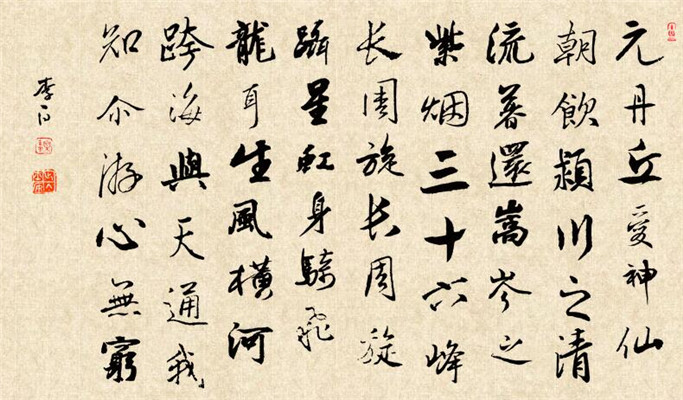 元丹丘愛神仙
朝飲潁川之清
流暮還嵩岑之
紫烟三十六峰
长周旋长周旋
躡星虹身騎飛
龍耳生風橫河
跨海與天通我
知尔游心無窮
李白